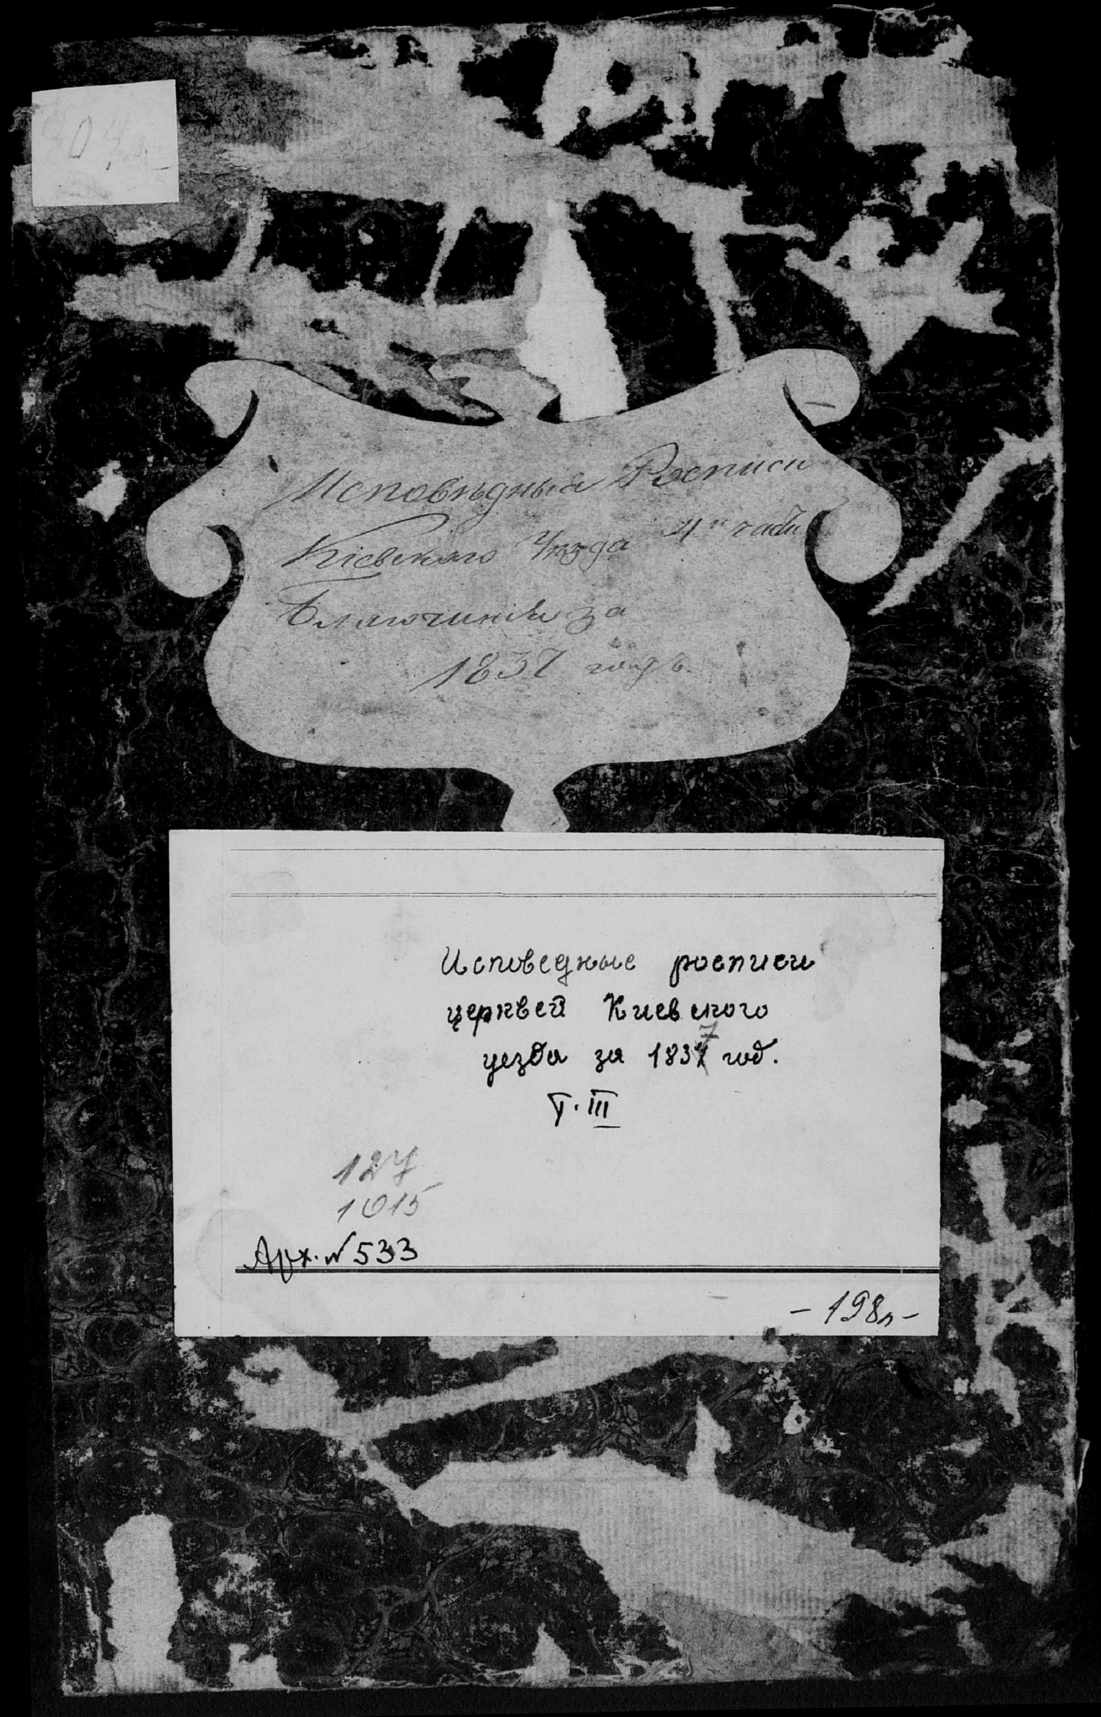 Исповѣдныя Росписи
Кіевскаго Уѣзда 4й части
Благочинія за
1837 годъ.
Исповедные росписи
церквей Киевского
уезда за 1837 год.
Т. III
127
1015
Арх. № 533
– 198л –